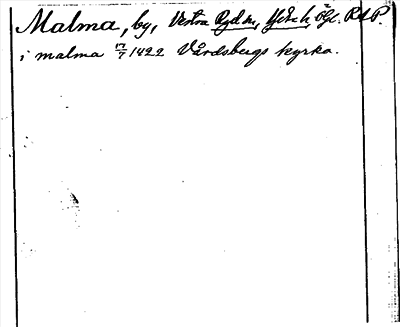 Malma, by, Västra Ryd sn, Ydre h, Ögl. RAP.
i malma 17/7 1422 Vårdsbergs kyrka.